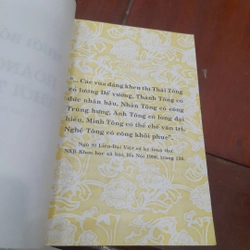 "... Các vua đáng khen thì Thái Tông
có lượng Đế vương, Thánh Tông có
đức nhân hậu, Nhân Tông có công
Trùng hưng, Anh Tông có lòng đại
hiếu, Minh Tông có thể chế văn trị,
Nghệ Tông có công khôi phục".
Ngô Sĩ Liên-Đại Việt sử ký
NXB Khoa học xã hội, Hà Nội trang